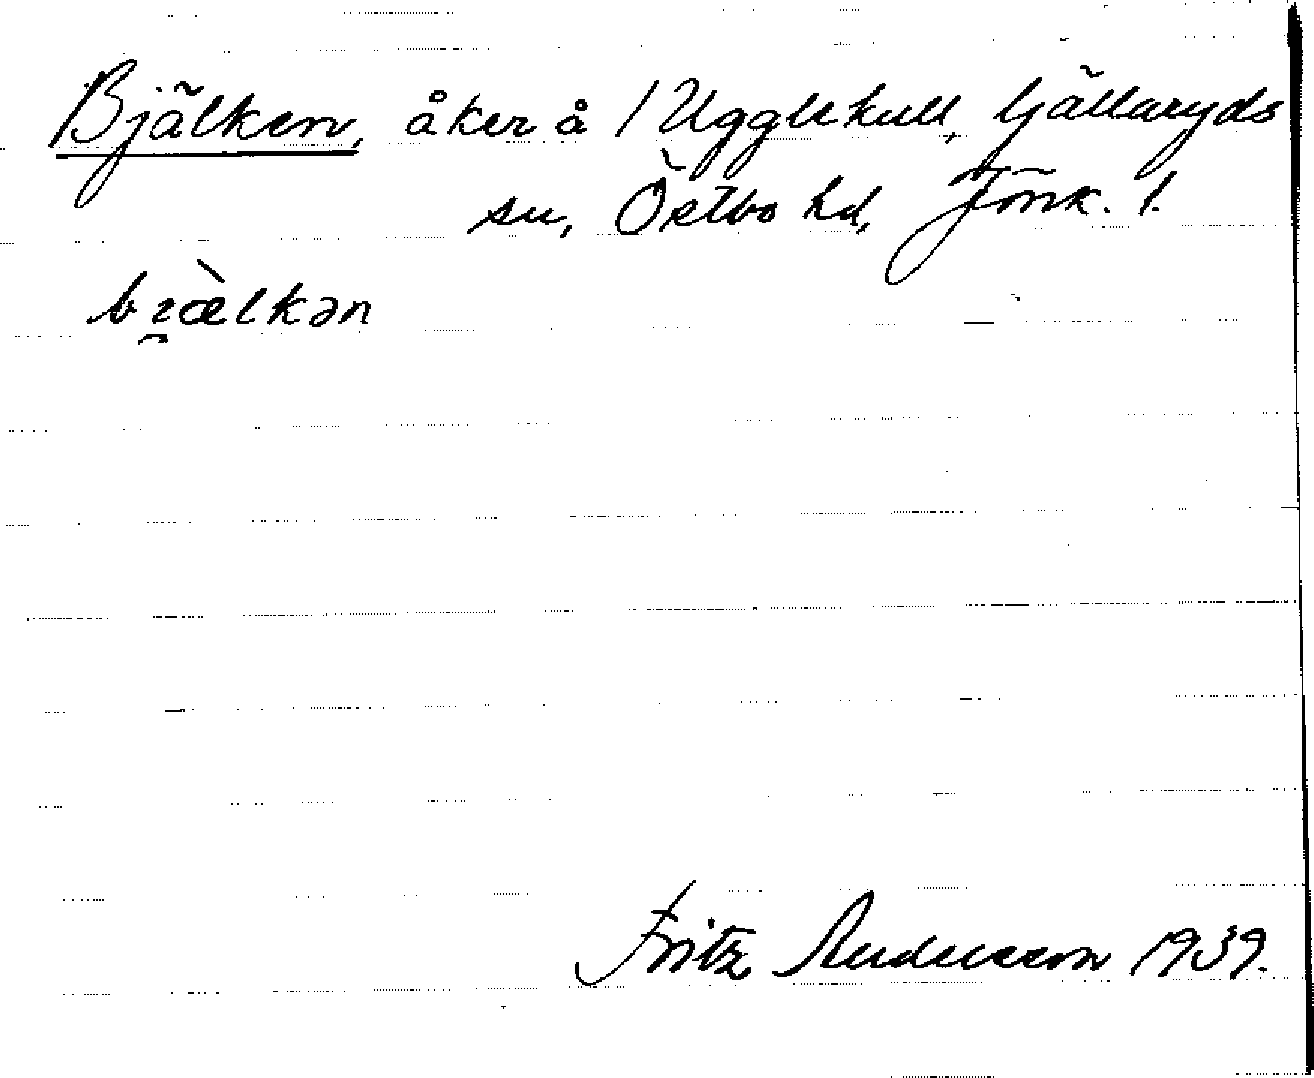 Bjälken, åker å 1 Ugglekull, Gällaryds
sn, Östbo hd, Jönk. l.
bi̯æ̀lkən
Fritz Andersson 1939.